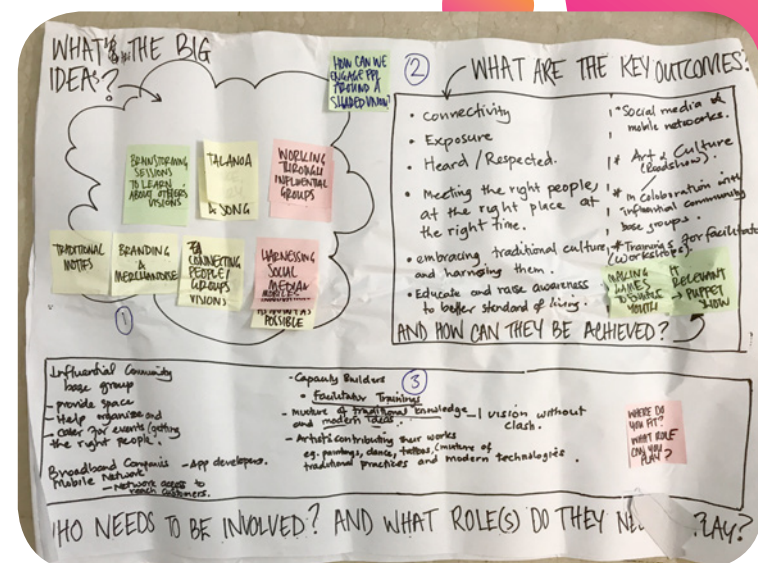 WHAT'S THE BIG
IDEAS?
HOW CAN WE
ENGAGE PPL
AROUND A
SHARED VISION?
BRAINSTORMING
SESSIONS
TO LEARN
ABOUT OTHERS
VISIONS
TALANOA
& SONG
WORKING
THROUGH
INFLUENTIAL
GROUPS
TRADITIONAL
MOTIFS
BRANDING
&
MERCHANDISE
CONNECTING
PEOPLE/
GROUPS
VISIONS
HARNESSING
SOCIAL
MEDIA
POSSIBLE
1
2
WHAT ARE THE KEY OUTCOMES?
• connectivity
• Exposure
• Heard / Respected.
• Meeting the right people,
at the right place at
the right time.
• embracing traditional culture,
and harnising them.
• Educate and raise awareness
to better standard of living.
* Social media &
mobile networks.
* Art & Culture
(Roadshow).
* In Coloboration with
influential community
base groups.
* Trainings for facilitato
(workshops).
MAKING
GAMES
YOUTH
IT
RELEVANT
→ PUPPET
SHOW
AND HOW CAN THEY BE ACHIEVED?
3
Influential Community
base group
- provide space
- Help organize and
- cater for events (getting
the right people.
Broadband Companies - App developers.
Mobile Network
- Network access to
reach customers.
- Capacity Builders
• Facilitator Trainings
- mixture of traditional knowledge - 1 vision without
and modern ideas. clash.
- Artists contributing their works
eg. paintings, dance, tattoos, (mixture of
traditional practices and modern technologies.
WHERE DO
YOU FIT?
WHAT ROLE
CAN YOU
PLAY?
HO NEEDS TO BE INVOLVED? AND WHAT ROLE(S) DO THEY NE LAY?